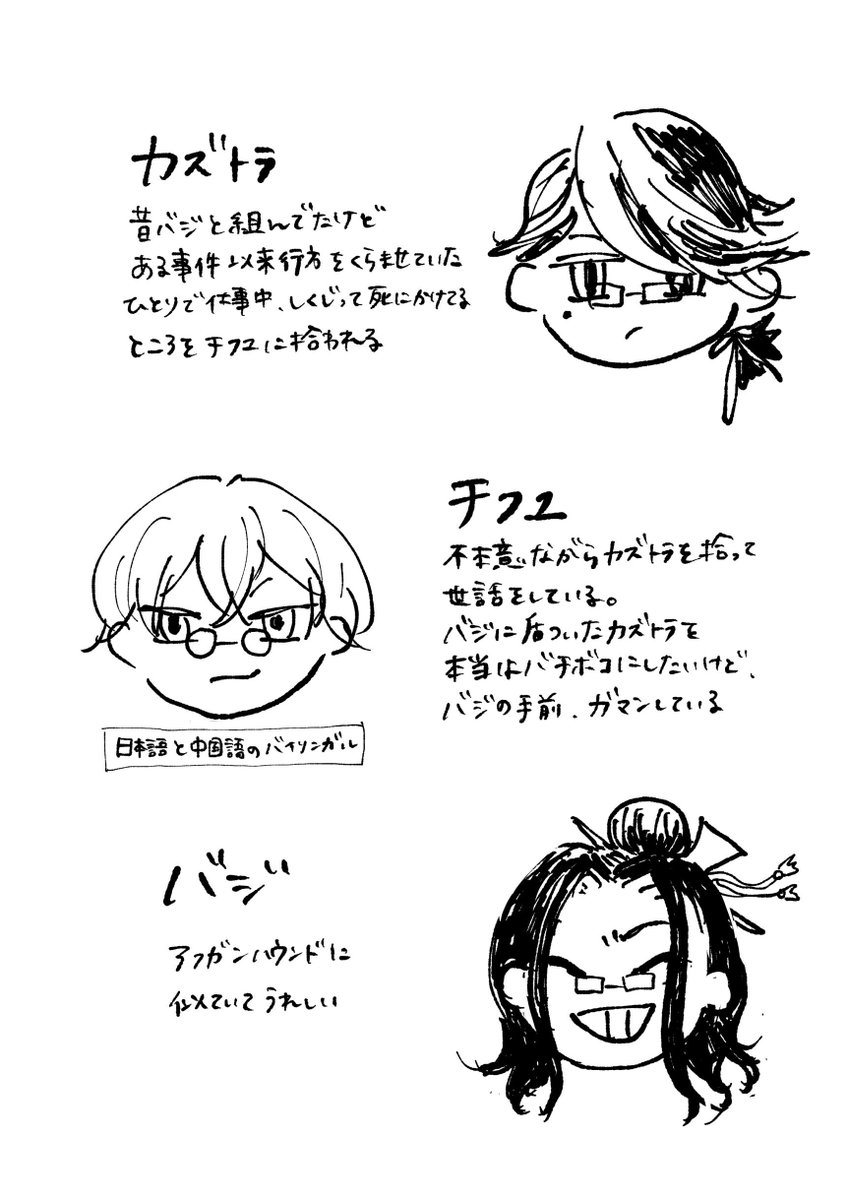 カズトラ
昔バジと組んでたけど
ある事件以来行方をくらませていた
ひとりで仕事中、しくじって死にかけてる
ところをチフユに拾われる
チフユ
不本意ながらカズトラを拾って
世話をしている。
バジに盾ついたカズトラを
本当はバチボコにしたいけど、
バジの手前、ガマンしている
日本語と中国語のバイリンガル
バジ
アフガンハウンドに
似ていてうれしい